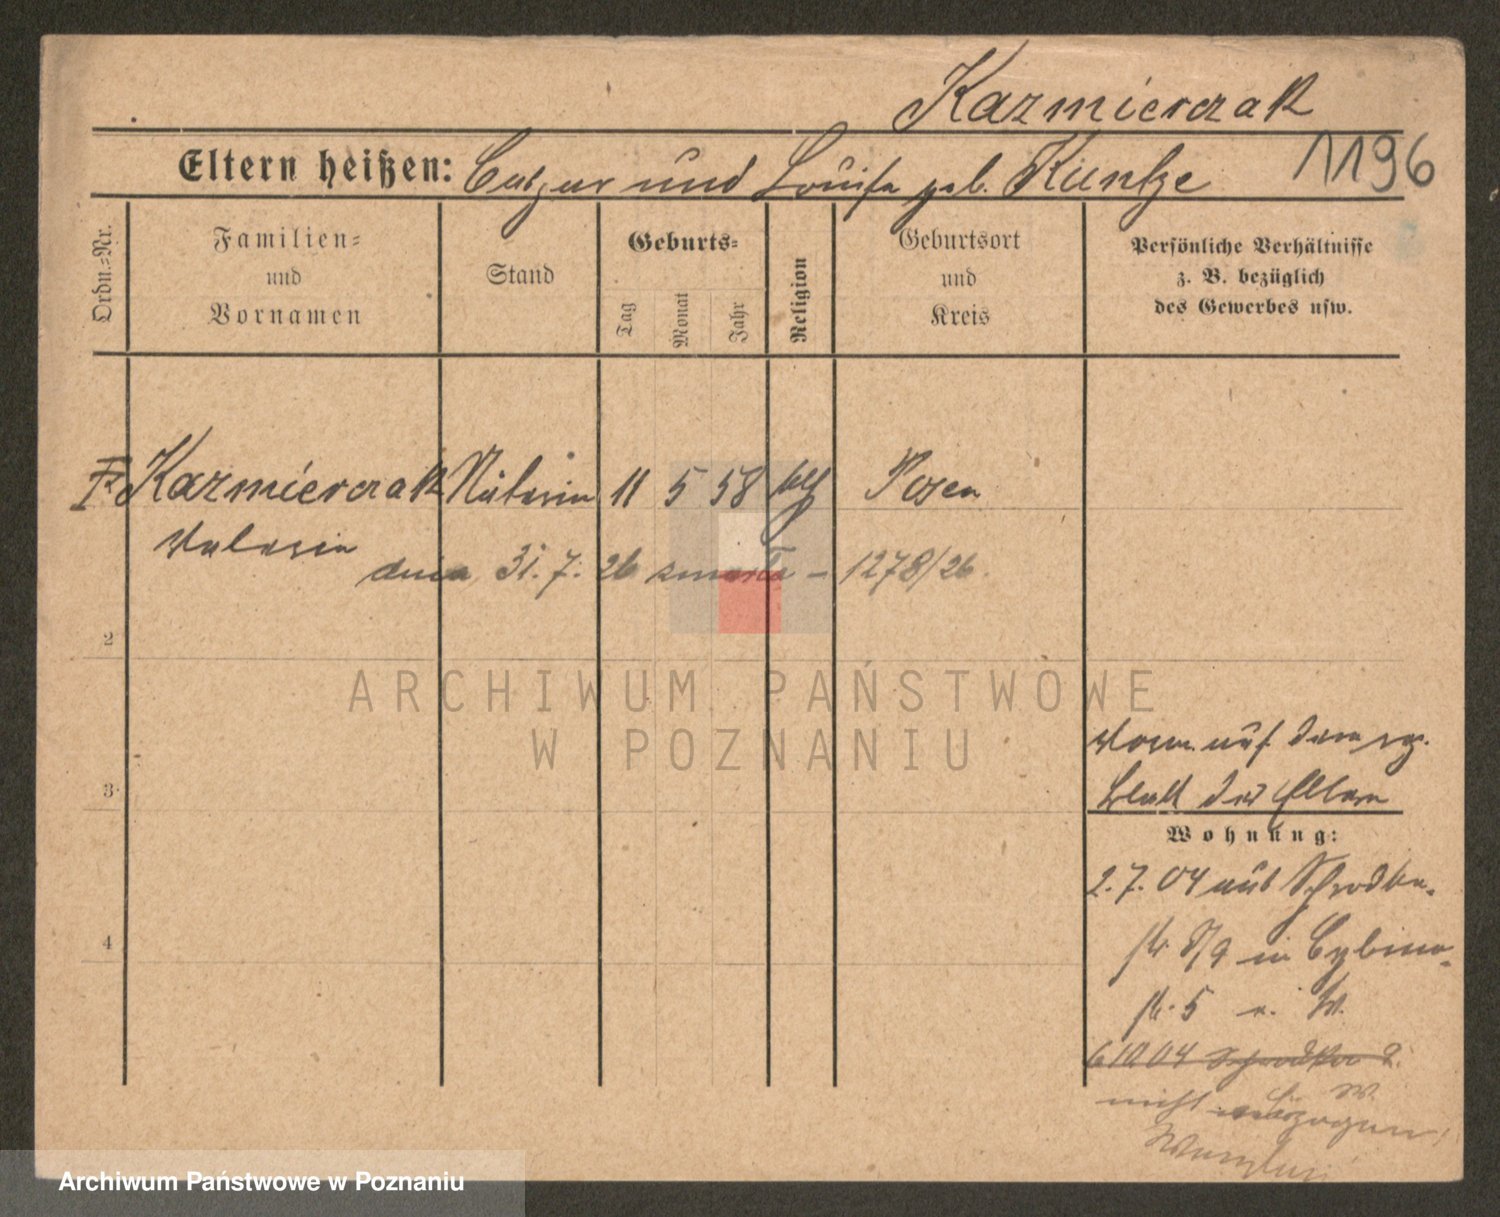 Kazmierczak
1196
Eltern heißen: Caspar und Louise geb. Kuntze
Ordn.-Nr.
Familien-
und
Vornamen
Stand
Geburts-
Tag
Monat
Jahr
Religion
Geburtsort
und
Kreis
Persönliche Verhältnisse
z. B. bezüglich
des Gewerbes usw.
Kazmierczak Näterin 11 5 58 kth Posen
Valeria
dnia 31.7.26 zmarła – 1278/26.
2
3
4
ARCHIWUM PAŃSTWOWE
W POZNANIU
auf dem
Blatt der Eltern
Wohnung:
2.7.04 aus Schrodka-
str. 8/9 in Cybina-
str. 5 b. W.
6 10 04 Schrodka 2.
nicht
Archiwum Państwowe w Poznaniu